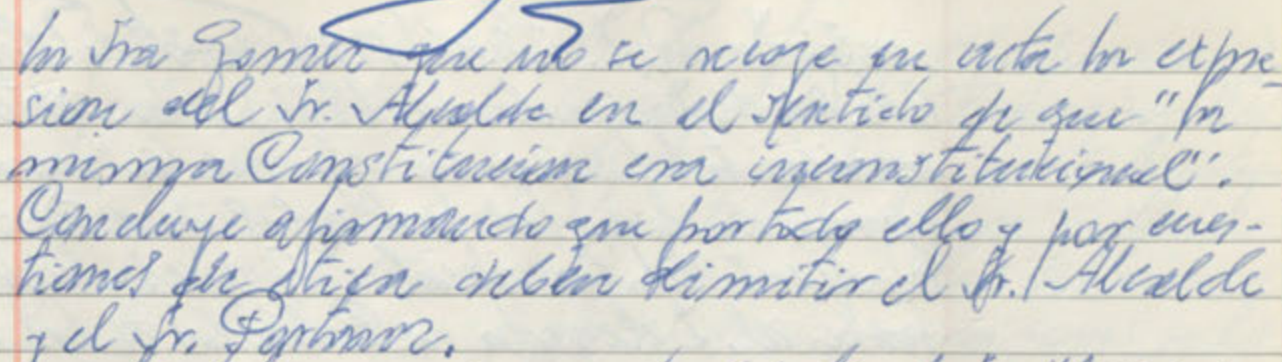 la Sra Gomez que no se recoge en acta la expre-
sion del Sr. Alcalde en el sentido de que "la
misma Constitucion era inconstitucional".
Concluye afirmando que por todo ello y por cues-
tiones de etica deben dimitir el Sr. Alcalde
y el Sr.